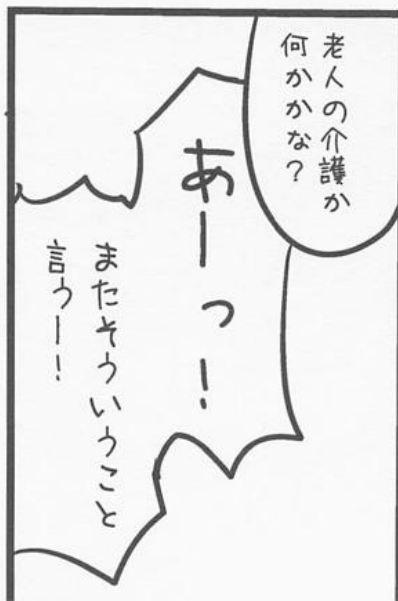 老人の介護か
何かかな？
あーっ！
またそういうこと
言うー！